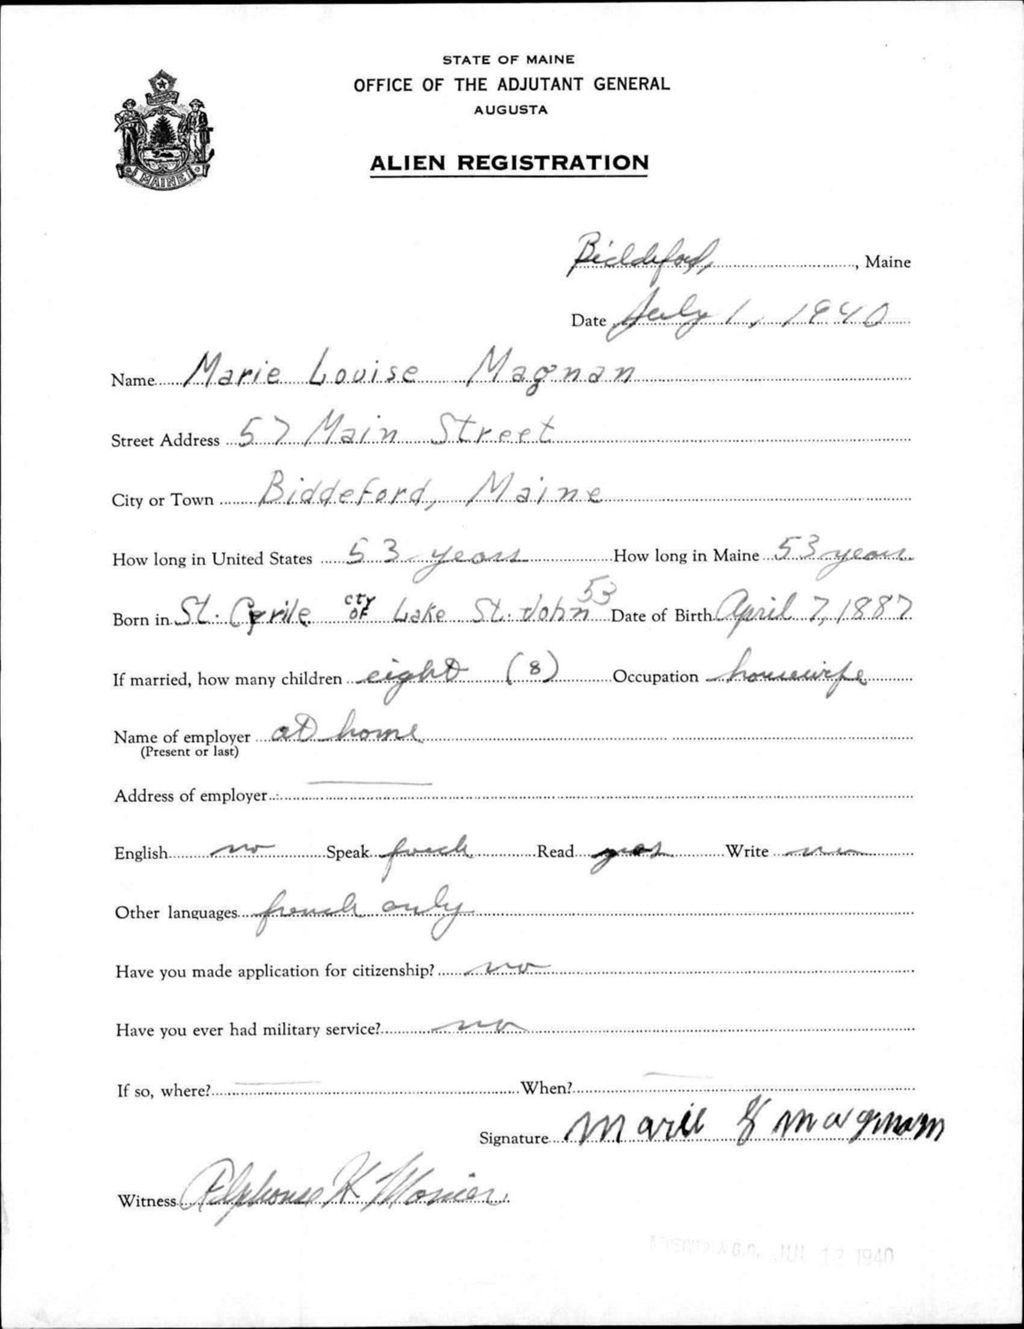 STATE OF MAINE
OFFICE OF THE ADJUTANT GENERAL
AUGUSTA
ALIEN REGISTRATION
MAINE
Biddeford, , Maine
Date July 1, 1940
Name Marie Louise Magnan
Street Address 57 Main Street
City or Town Biddeford, Maine
How long in United States 53 years How long in Maine 53 years
53
Born in St. Cyrile cty of Lake St. John Date of Birth April 7, 1887
If married, how many children eight (8) Occupation housewife
Name of employer at home
(Present or last)
Address of employer
English no Speak french Read yes Write no
Other languages french only
Have you made application for citizenship? no
Have you ever had military service? no
If so, where? When?
Signature Marie Magnan
Witness Alphonse K
A.G.O. JUL 12 1940